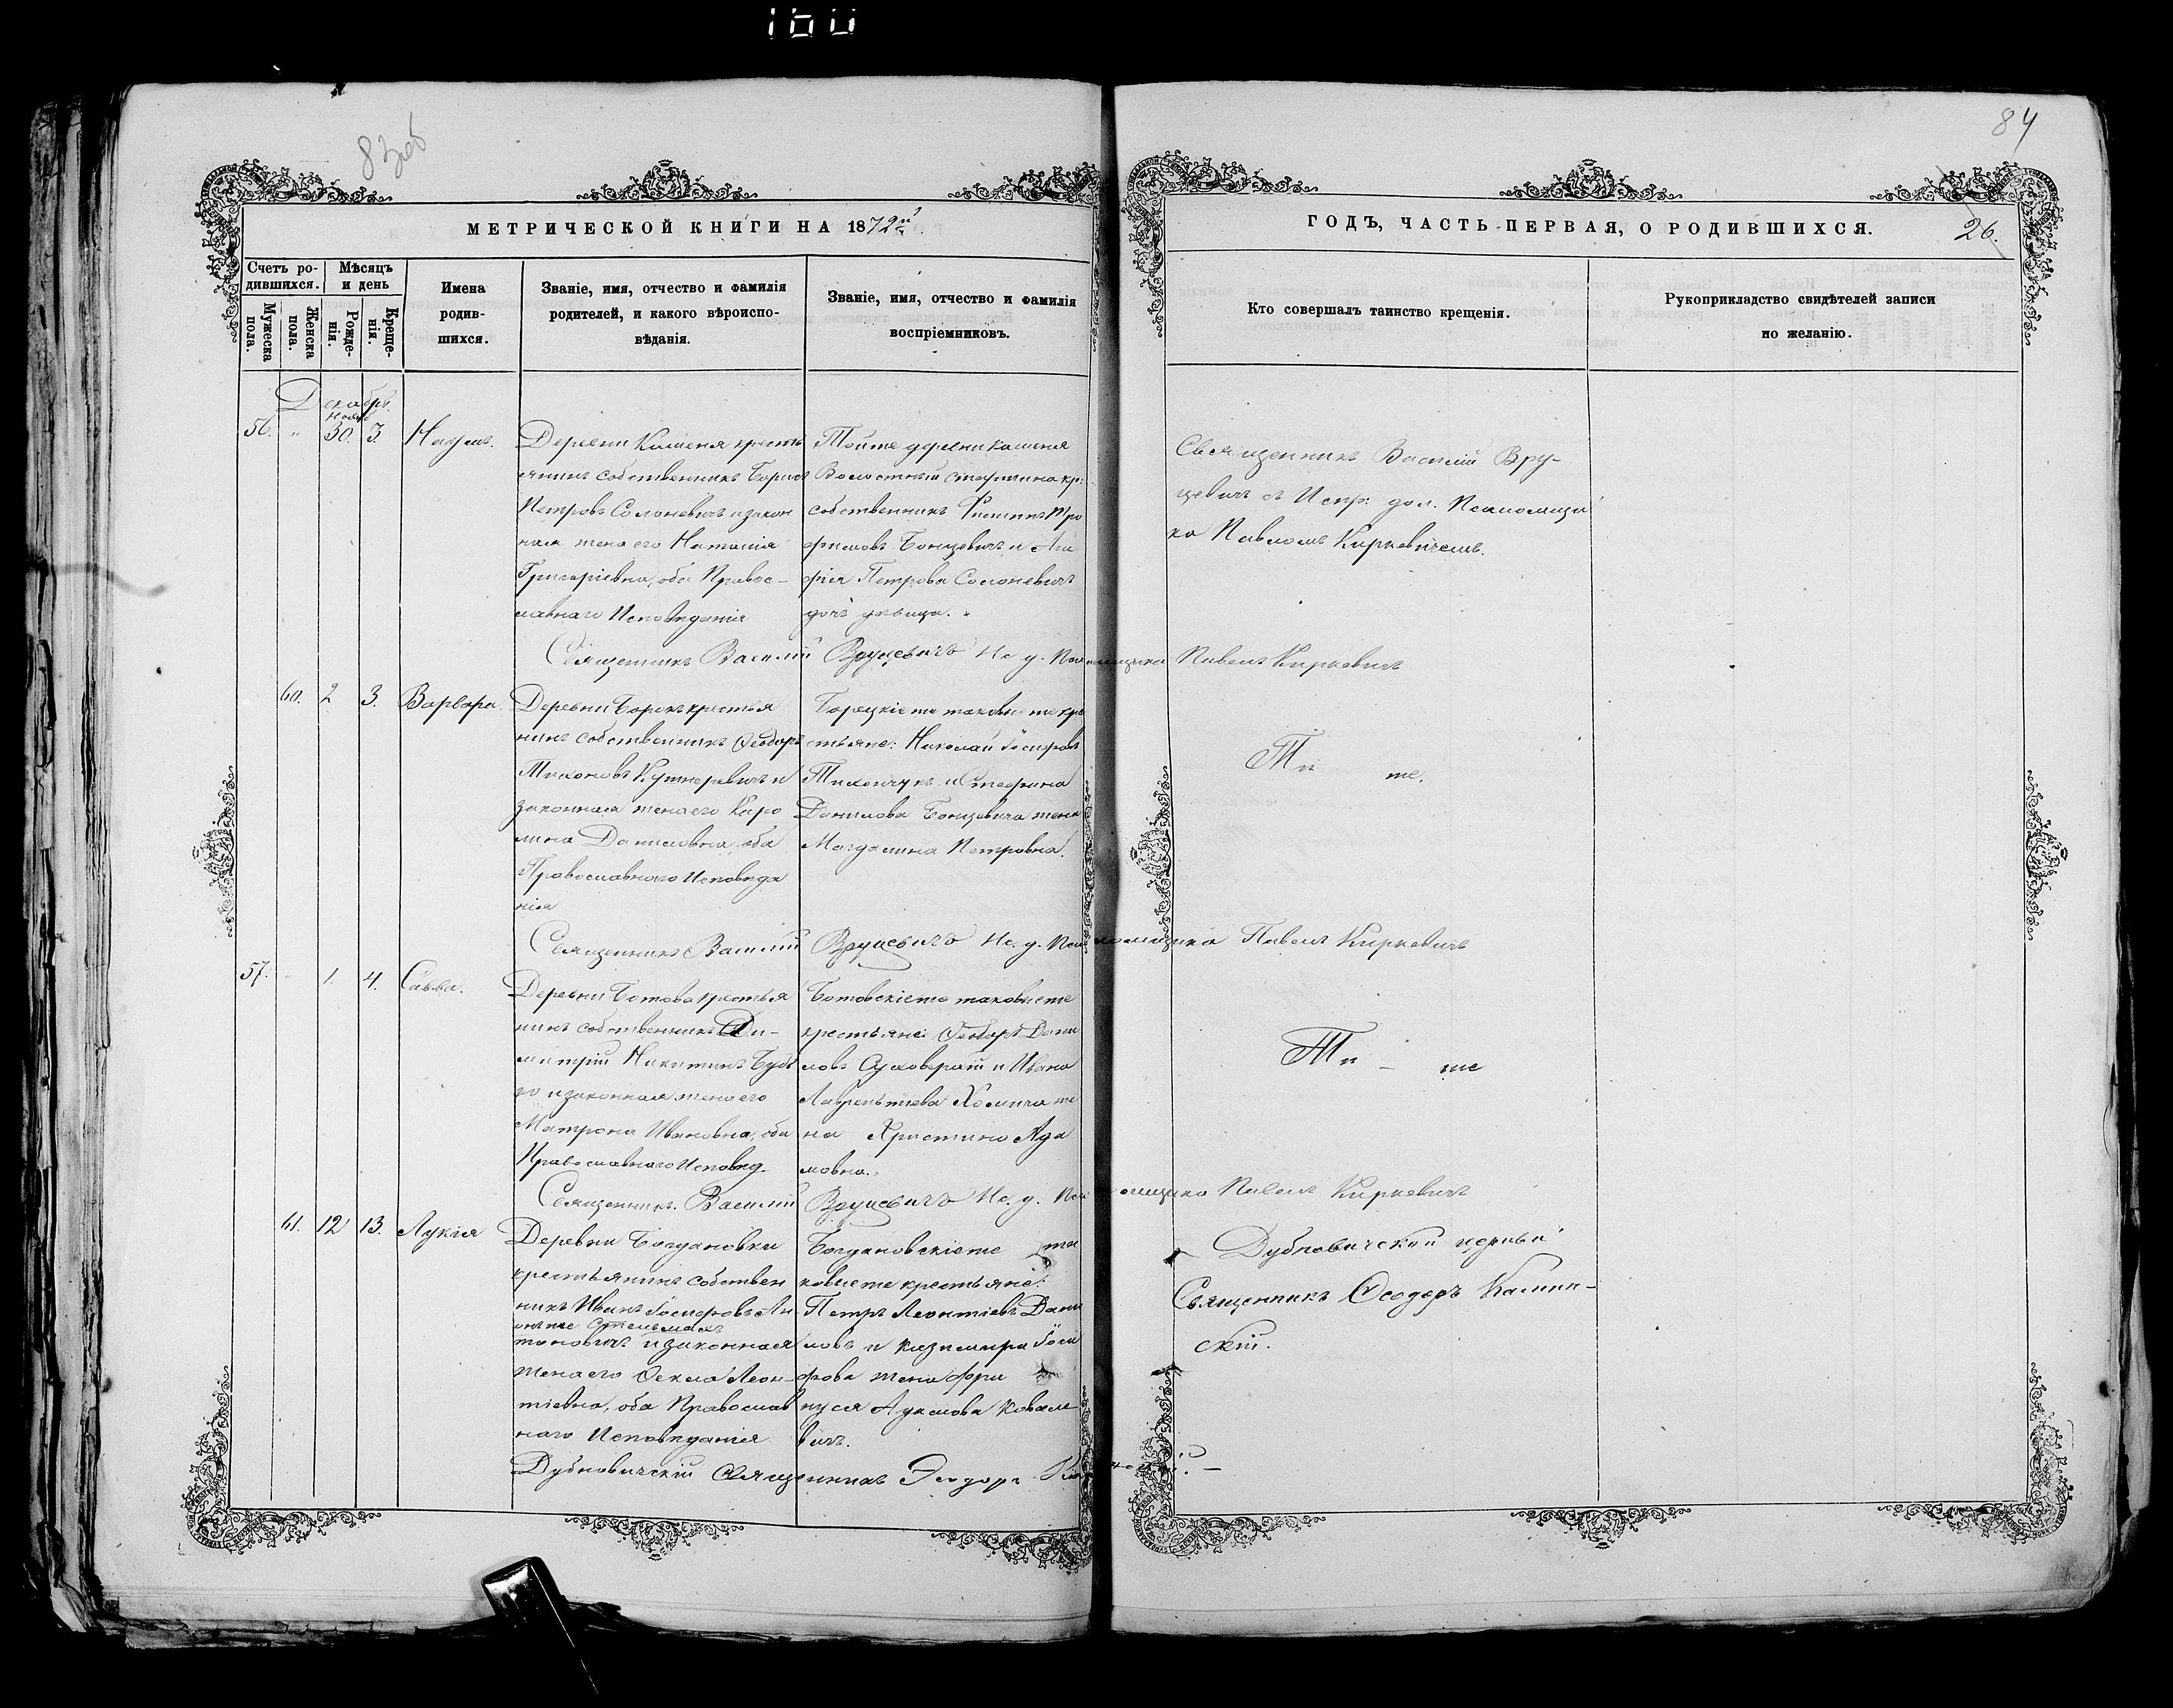 160
83об
84
МЕТРИЧЕСКОЙ КНИГИ НА 1872й
ГОДЪ, ЧАСТЬ ПЕРВАЯ, О РОДИВШИХСЯ.
26.
Счетъ ро-
дившихся.
Мужеска
пола.
Женска
пола.
Мѣсяцъ
и день
Рожде-
нія.
Креще-
нія.
Имена
родив-
шихся.
Званіе, имя, отчество и фамилія
родителей, и какого вѣроиспо-
вѣданія.
Званіе, имя, отчество и фамилія
воспріемниковъ.
Кто совершалъ таинство крещенія.
Рукоприкладство свидѣтелей записи
по желанію.
Декабрь.
Нояб
56. " 30. 3. Наумъ.
Деревни Каменя кресть
янинъ собственникъ Борисъ
Петровъ Солоневичъ и закон
ная жена его Наталія
Григоріевна, оба Правос-
лавнаго Исповѣданія
Тойже деревни Каменя
Волостный старшина кр:
собственникъ Филиппъ Тро
фимовъ Бонцевичъ и Ага
фія Петрова Солоневичъ
дочь девица.
Священникъ Василій Вру-
цевичъ съ Испр: дол. Псаломщи
ка Павломъ Киркевичемъ.
Священникъ Василій Вруцевичъ Ис. д. Псаломщика Павелъ Киркевичъ
60. 2 3. Варвара.
Деревни Борокъ крестья
нинъ собственникъ Ѳеодоръ
Тихоновъ Кушнеревичъ и
законная жена его Каро
лина Даниловна, оба
Православнаго Исповѣда
нія
Борецкіе же таковые же кре
стьяне: Николай Іосифовъ
Тихончукъ и Стефана
Данилова Бонцевича жена
Магдалина Петровна.
Тѣ же.
Священникъ Василій Вруцевичъ Ис. д. Псаломщика Павелъ Киркевичъ
57. " 1. 4. Савва.
Деревни Ботова крестья
нинъ собственникъ Ди-
митрій Никитинъ Буд
ко и законная жена его
Матрона Ивановна, оба
Православнаго Исповѣд.
Ботовскіе же таковые же
крестьяне: Ѳеодоръ Дани
ловъ Суховерхій и Ивана
Лаврентіева Хомича же
на Христина Ада
мовна.
Тѣ - же
Священникъ Василій Вруцевичъ Ис. д. Псаломщика Павелъ Киркевичъ
61. 12 13. Лукія
Деревни Богдановки
крестьянинъ собствен
никъ Иванъ Іосифовъ Ан-
онъ же Стельмахъ
тоновичъ и законная
жена его Ѳекла Леон-
тіевна, оба Православ
наго Исповѣданія
Богдановскіе же та
ковые же крестьяне:
Петръ Леонтіевъ Дани
ловъ и Казимира Іоси
фова жена Фра
нуся Адамова Ковале
вичъ.
Дубновичской церкви
Священникъ Ѳеодоръ Калин-
скій.
Дубновичскій Священникъ Ѳеодоръ Калинскій. –